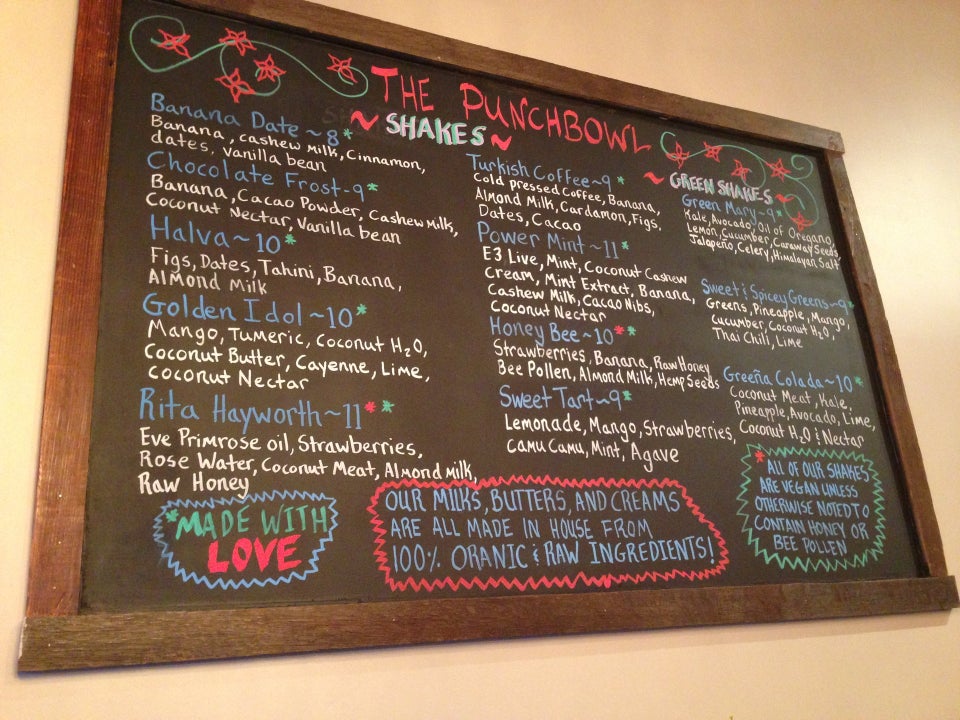 THE PUNCHBOWL
~ SHAKES ~
Banana Date ~ 8 *
Banana, cashew milk, Cinnamon,
dates, vanilla bean
Chocolate Frost - 9 *
Banana, Cacao Powder, Cashew Milk,
Coconut Nectar, Vanilla bean
Halva ~ 10 *
Figs, Dates, Tahini, Banana,
Almond Milk
Golden Idol ~ 10 *
Mango, Tumeric, Coconut H2O,
Coconut Butter, Cayenne, Lime,
Coconut Nectar
Rita Hayworth ~ 11 * *
Eve Primrose oil, Strawberries,
Rose Water, Coconut Meat, Almond milk,
Raw Honey
Turkish Coffee ~ 9 *
Cold pressed Coffee, Banana,
Almond Milk, Cardamon, Figs,
Dates, Cacao
Power Mint ~ 11 *
E3 Live, Mint, Coconut Cashew
Cream, Mint Extract, Banana,
Cashew Milk, Cacao Nibs,
Coconut Nectar
Honey Bee ~ 10 * *
Strawberries, Banana, Raw Honey
Bee Pollen, Almond Milk, Hemp Seeds
Sweet Tart ~ 9 *
Lemonade, Mango, Strawberries,
Camu Camu, Mint, Agave
~ GREEN SHAKES ~
Green Mary ~ 9 *
Kale, Avocado, Oil of Oregano,
Lemon, Cucumber, Caraway Seeds,
Jalapeño, Celery, Himalayan Salt
Sweet & Spicey Greens ~ 9 *
Greens, Pineapple, Mango,
Cucumber, Coconut H2O,
Thai Chili, Lime
Greeña Colada ~ 10 *
Coconut Meat, Kale,
Pineapple, Avocado, Lime,
Coconut H2O & Nectar
* MADE WITH
LOVE
OUR MILKS, BUTTERS, AND CREAMS
ARE ALL MADE IN HOUSE FROM
100% ORANIC & RAW INGREDIENTS!
* ALL OF OUR SHAKES
ARE VEGAN UNLESS
OTHERWISE NOTED TO
CONTAIN HONEY OR
BEE POLLEN